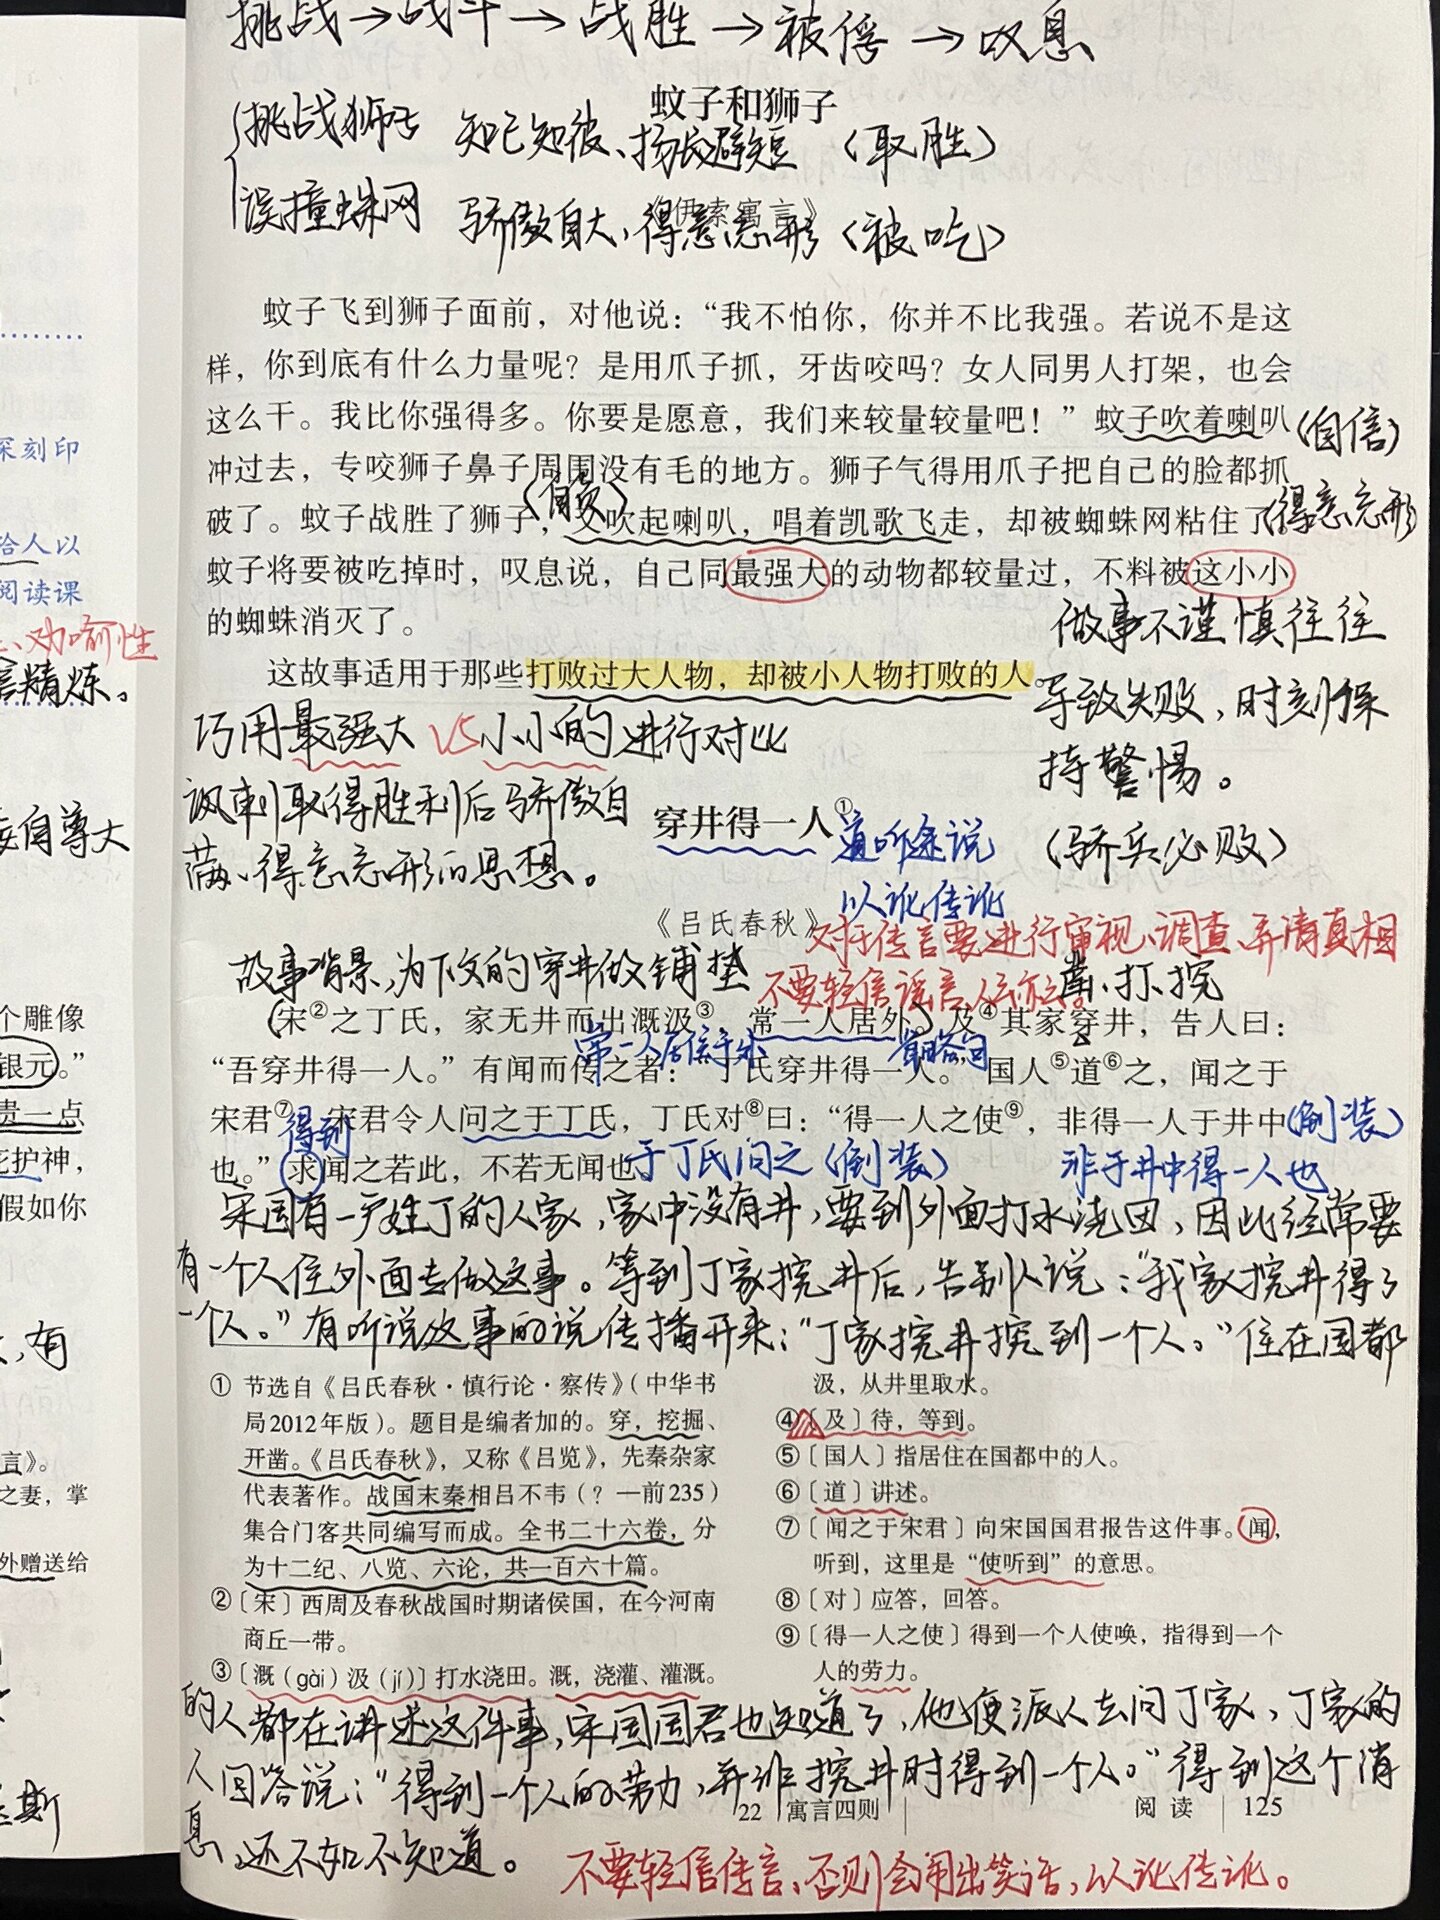 挑战→战斗→战胜→被俘→叹息
蚊子和狮子
挑战狮子 知己知彼、扬长避短（取胜）
误撞蛛网 骄傲自大、得意忘形（被吃）
《伊索寓言》
蚊子飞到狮子面前，对他说：“我不怕你，你并不比我强。若说不是这
样，你到底有什么力量呢？是用爪子抓，牙齿咬吗？女人同男人打架，也会
这么干。我比你强得多。你要是愿意，我们来较量较量吧！”蚊子吹着喇叭
（自信）
冲过去，专咬狮子鼻子周围没有毛的地方。狮子气得用爪子把自己的脸都抓
（自负）
破了。蚊子战胜了狮子，又吹起喇叭，唱着凯歌飞走，却被蜘蛛网粘住了
（得意忘形）
蚊子将要被吃掉时，叹息说，自己同最强大的动物都较量过，不料被这小小
的蜘蛛消灭了。
做事不谨慎往往
导致失败，时刻保
持警惕。
（骄兵必败）
这故事适用于那些打败过大人物，却被小人物打败的人。
巧用最强大VS小小的进行对比
讽刺取得胜利后骄傲自
满、得意忘形的思想。
穿井得一人①
道听途说
以讹传讹
《吕氏春秋》
对于传言要进行审视、调查、弄清真相
不要轻信谣言、人云亦云。
故事背景，为下文的穿井做铺垫
凿、打、挖
（宋②之丁氏，家无井而出溉汲③，常一人居外。）及④其家穿井，告人曰：
常一人居住于外
省略句
“吾穿井得一人。”有闻而传之者：“丁氏穿井得一人。”国人⑤道⑥之，闻之于
宋君⑦。宋君令人问之于丁氏，丁氏对⑧曰：“得一人之使⑨，非得一人于井中
（倒装）
得到
也。”求闻之若此，不若无闻也。
于丁氏问之（倒装）
非于井中得一人也
宋国有一户姓丁的人家，家中没有井，要到外面打水浇田，因此经常要
有一个人住外面去做这事。等到丁家挖井后，告别人说：“我家挖井得了
一个人。”有听说这事的说传播开来：“丁家挖井挖到一个人。”住在国都
① 节选自《吕氏春秋·慎行论·察传》（中华书
局2012年版）。题目是编者加的。穿，挖掘、
开凿。《吕氏春秋》，又称《吕览》，先秦杂家
代表著作。战国末秦相吕不韦（？—前235）
集合门客共同编写而成。全书二十六卷，分
为十二纪、八览、六论，共一百六十篇。
②〔宋〕西周及春秋战国时期诸侯国，在今河南
商丘一带。
③〔溉（gài）汲（jí）〕打水浇田。溉，浇灌、灌溉。
汲，从井里取水。
④〔及〕待，等到。
⑤〔国人〕指居住在国都中的人。
⑥〔道〕讲述。
⑦〔闻之于宋君〕向宋国国君报告这件事。闻，
听到，这里是“使听到”的意思。
⑧〔对〕应答，回答。
⑨〔得一人之使〕得到一个人使唤，指得到一个
人的劳力。
的人都在讲述这件事，宋国国君也知道了，他便派人去问丁家，丁家的
人回答说：“得到一个人的劳力，并非挖井时得到一个人。”得到这个消
息，还不如不知道。
22 寓言四则
阅读 125
不要轻信传言、否则会闹出笑话，以讹传讹。
深刻印
给人以
阅读课
、劝喻性
言精炼。
妄自尊大
个雕像
银元。”
贵一点
护神，
假如你
，有
言》。
之妻，掌
外赠送给
斯